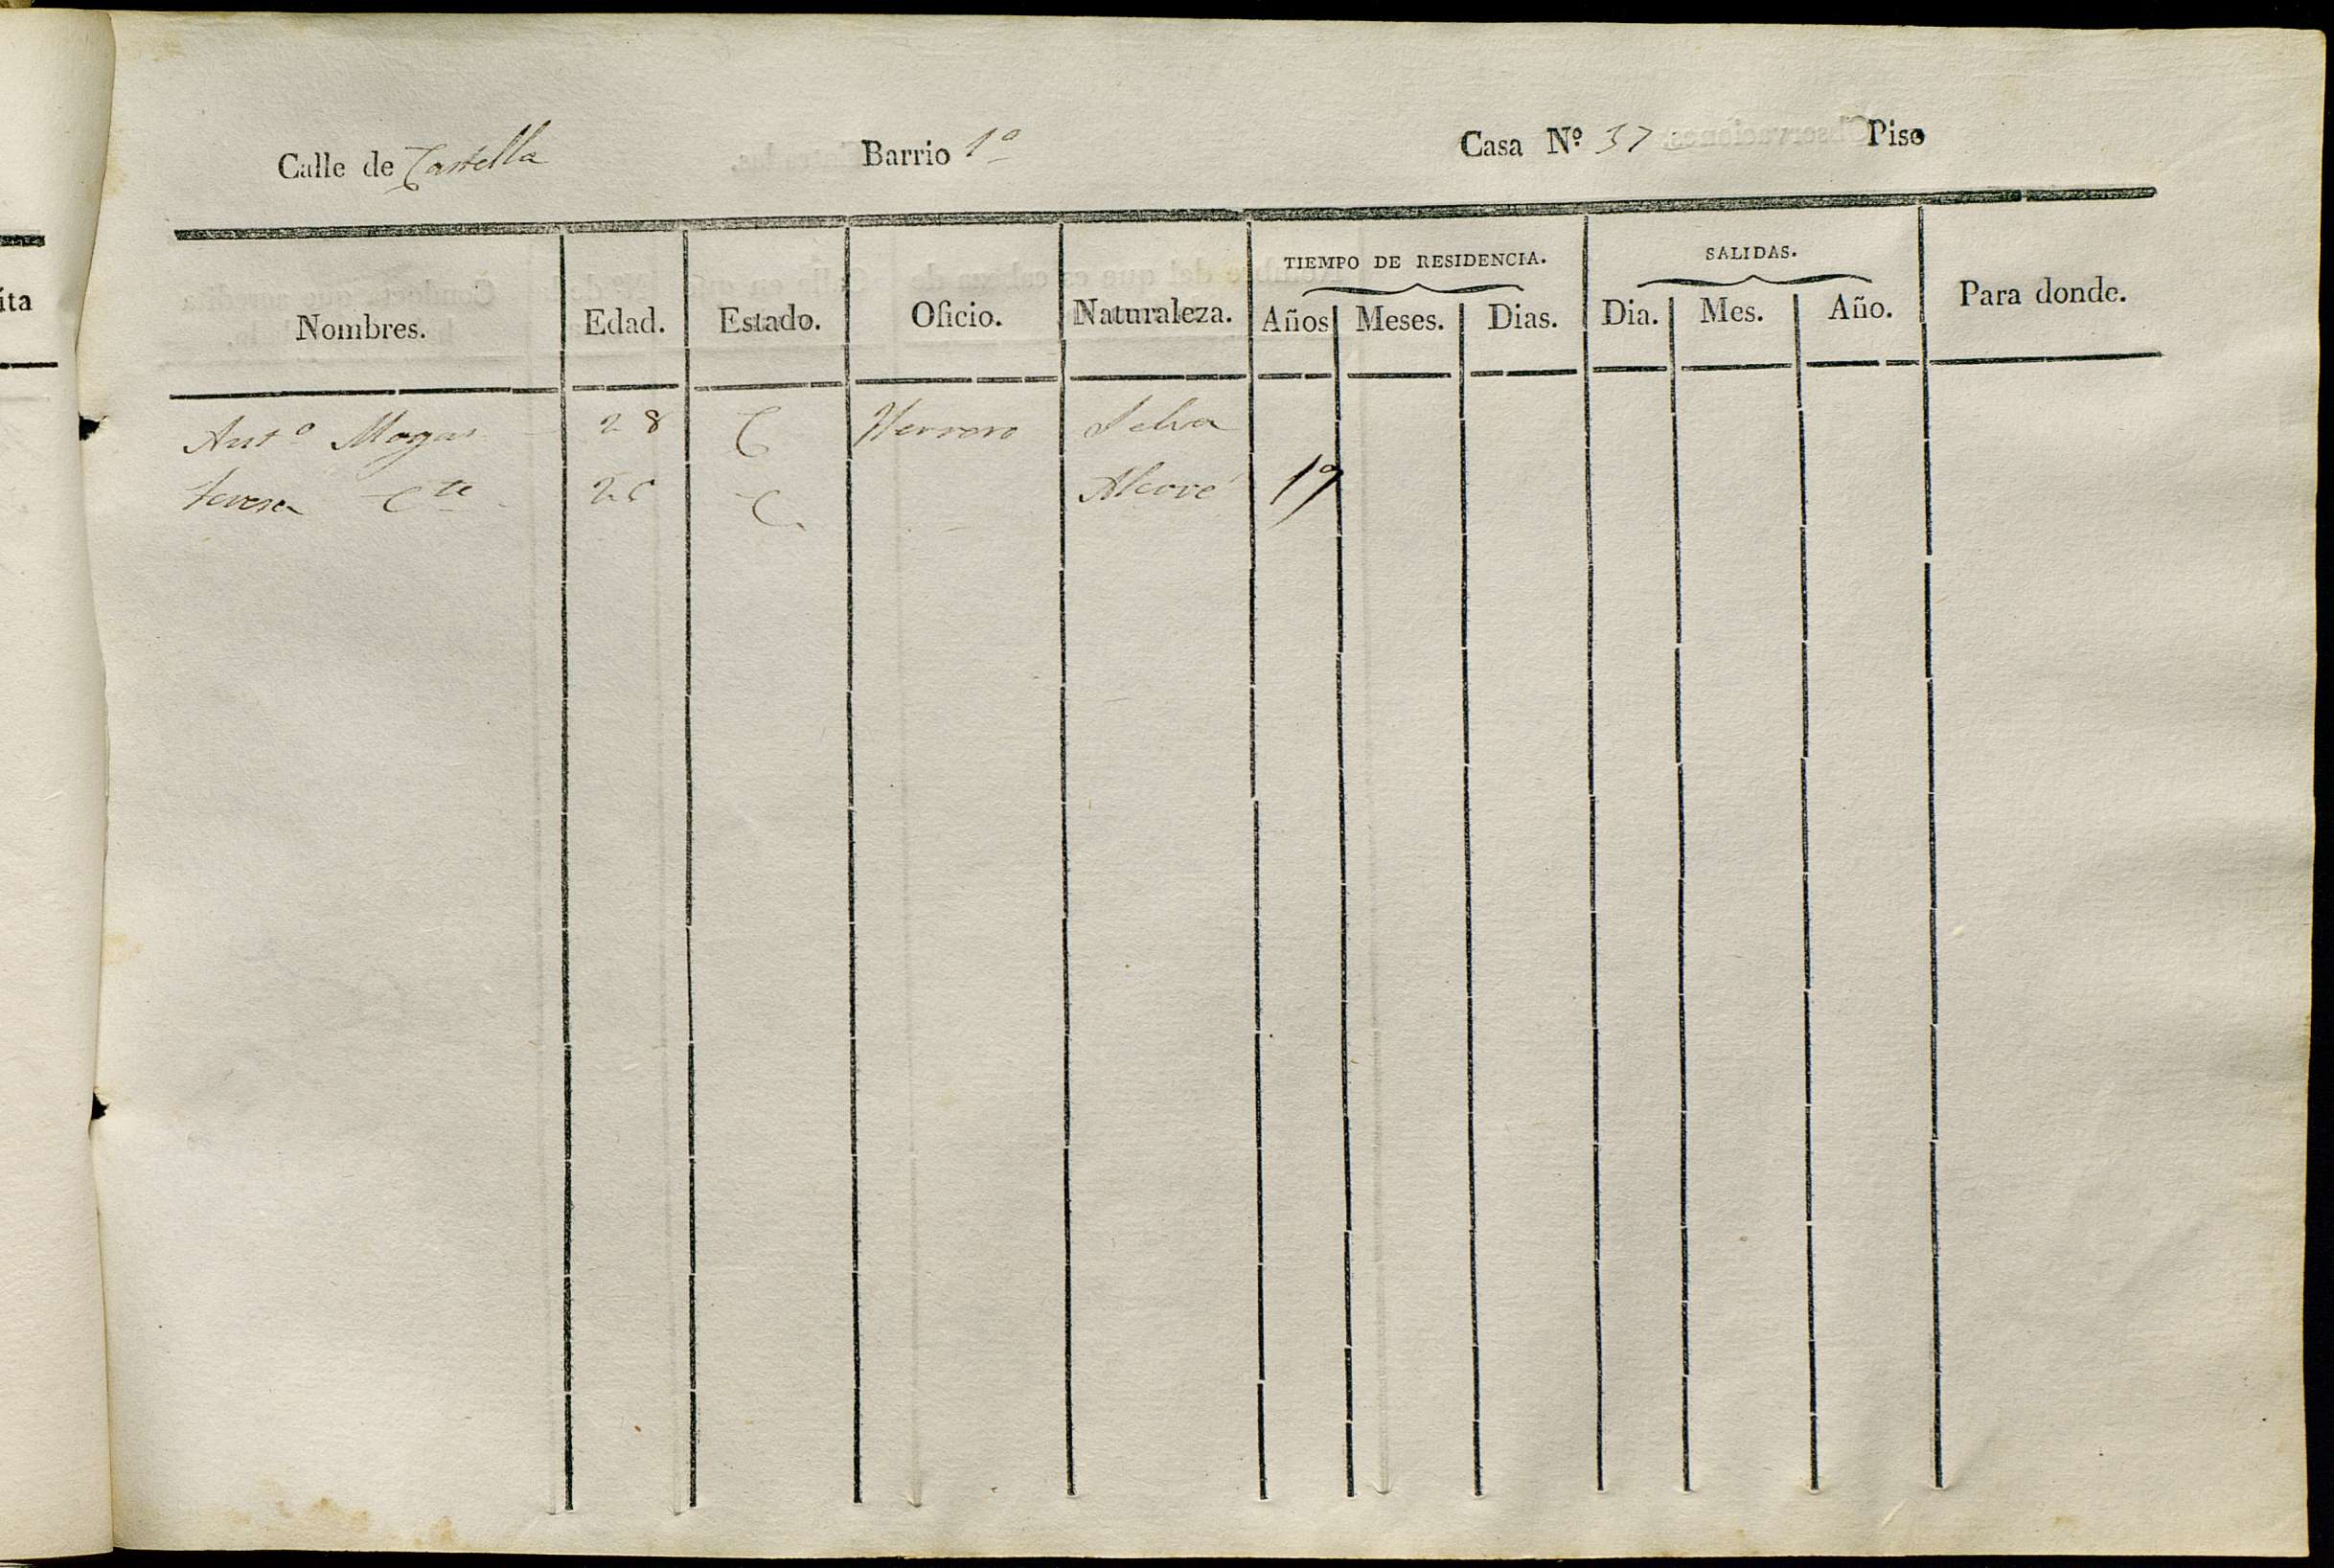 ita
Calle de Castella Barrio 1º Casa Nº 37 Piso
TIEMPO DE RESIDENCIA. SALIDAS.
Nombres. Edad. Estado. Oficio. Naturaleza. Años Meses. Dias. Dia. Mes. Año. Para donde.
Antº Magar 28 C Herrero Selva
Teresa Cta C. 19